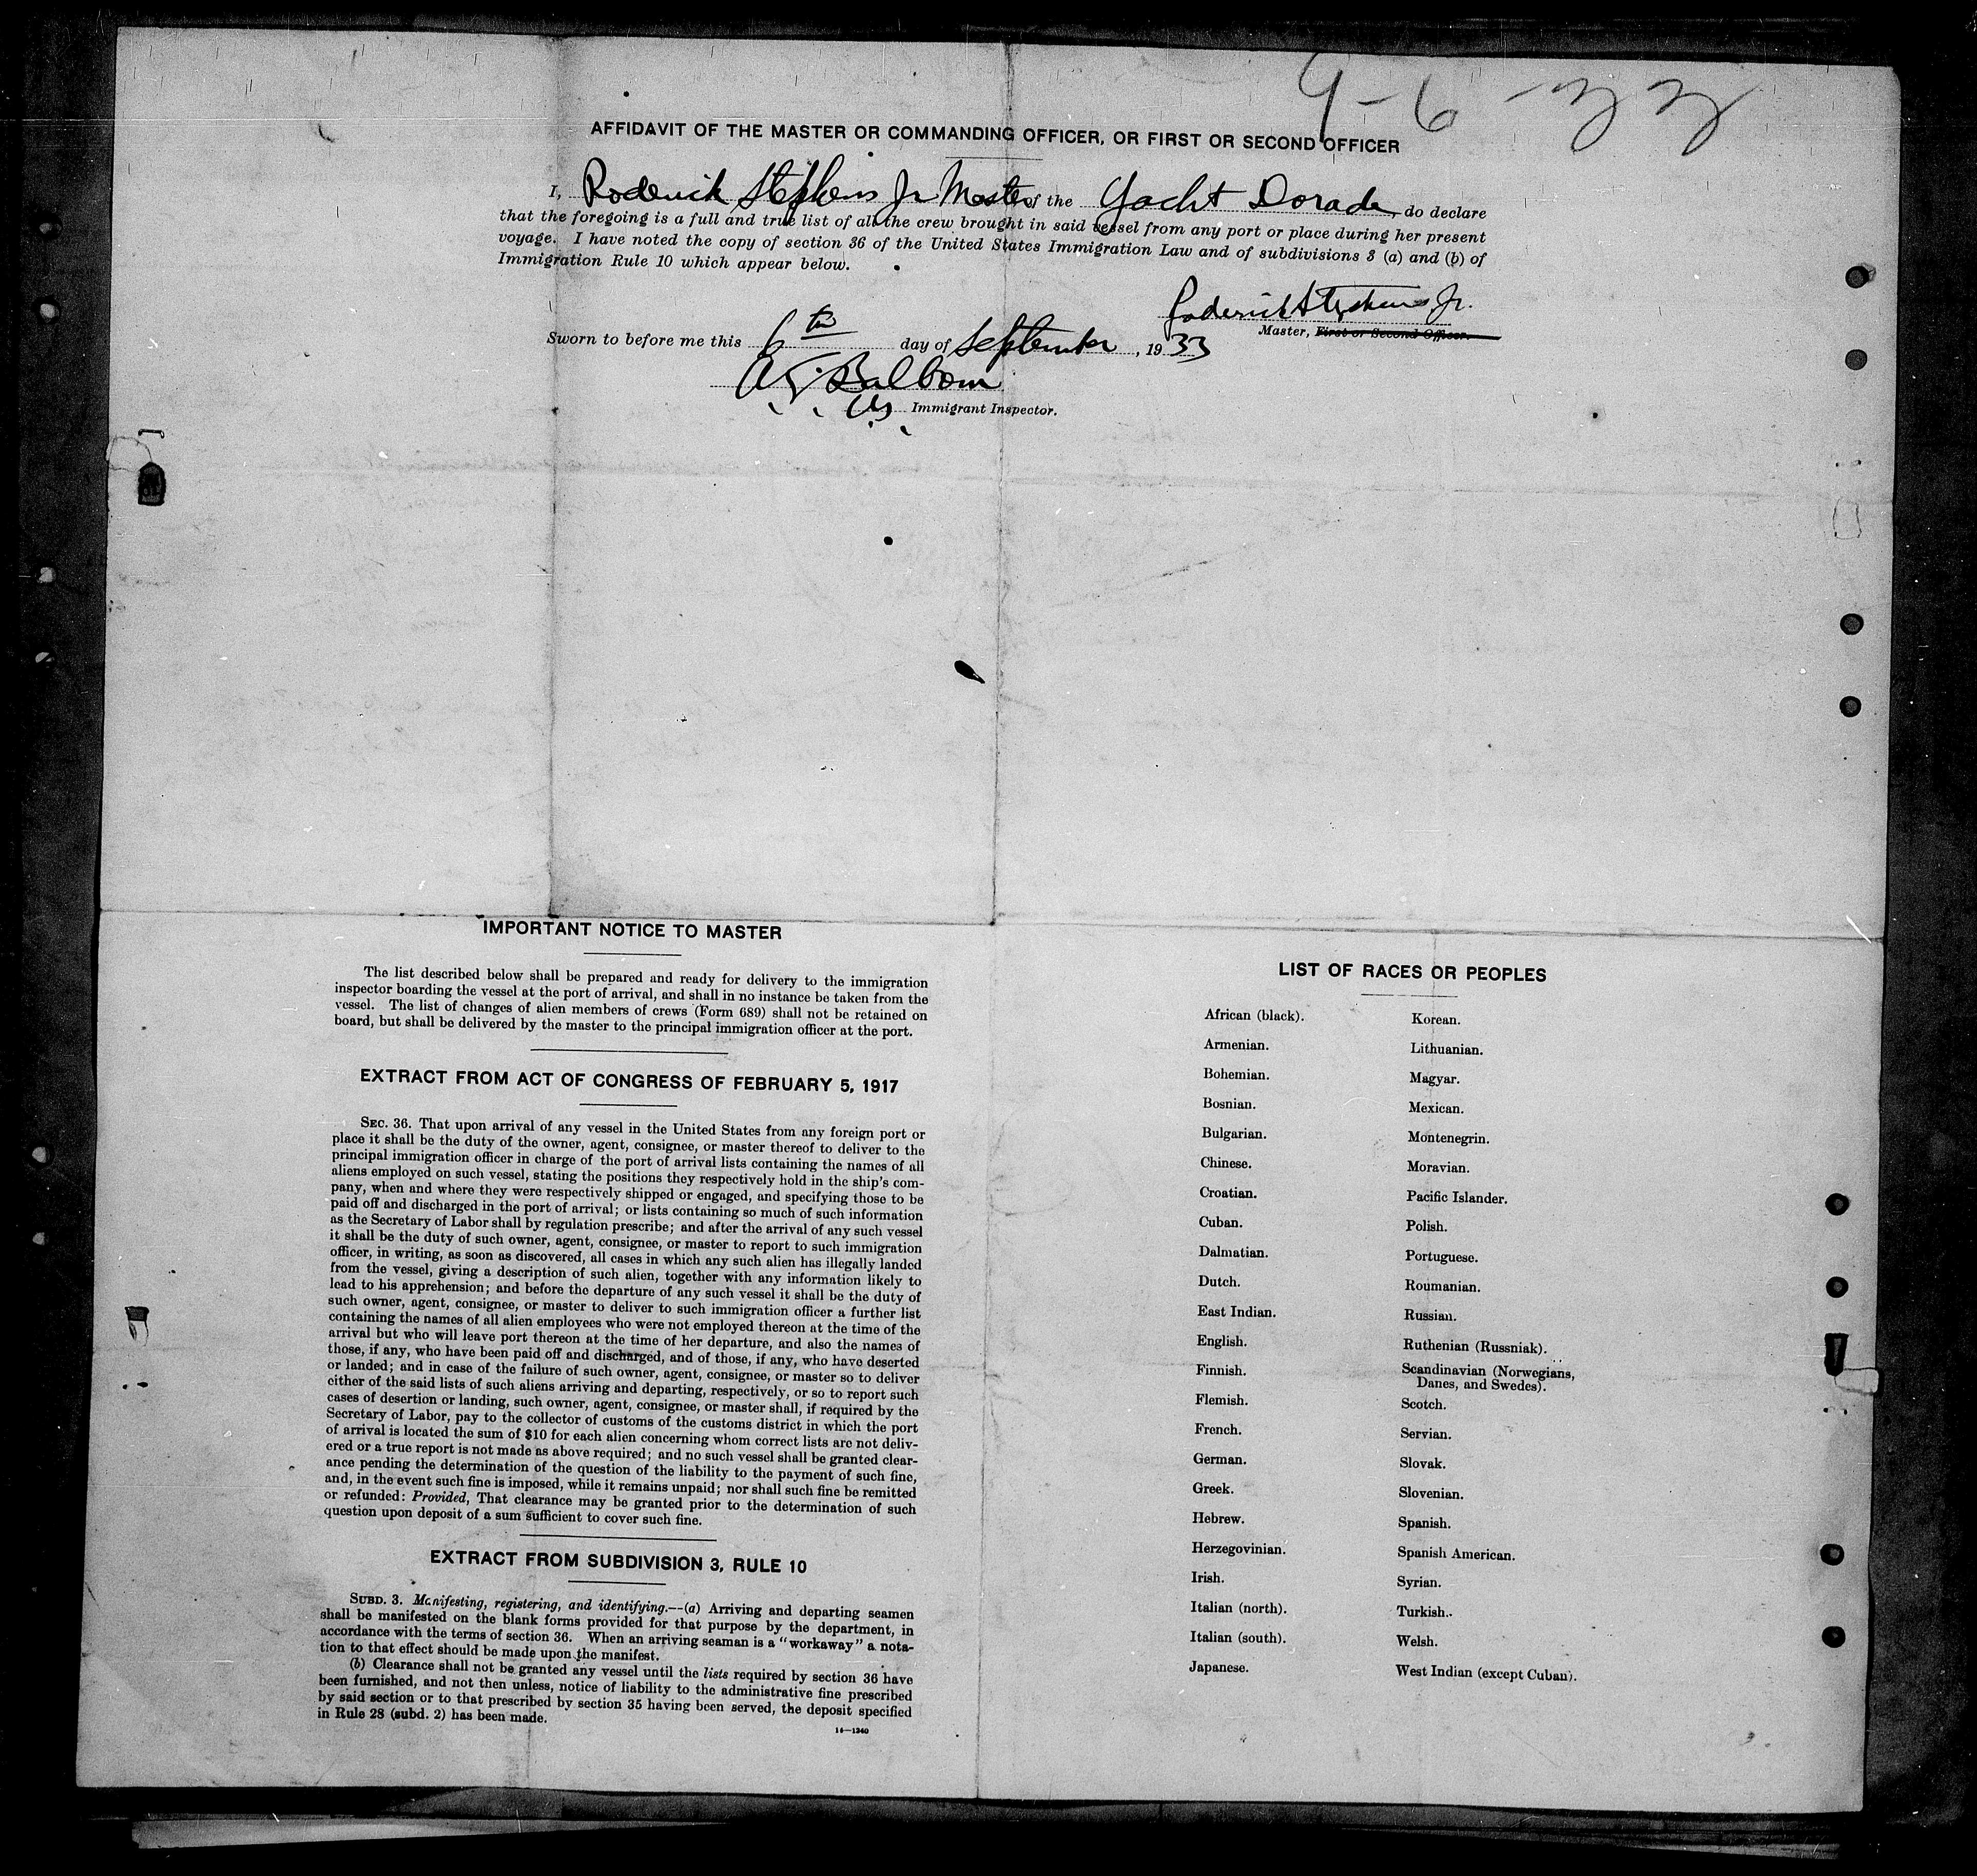 9-6-33
AFFIDAVIT OF THE MASTER OR COMMANDING OFFICER, OR FIRST OR SECOND OFFICER
I, Roderick Stephens Jr Master of the Yacht Dorade, do declare
that the foregoing is a full and true list of all the crew brought in said vessel from any port or place during her present
voyage. I have noted the copy of section 36 of the United States Immigration Law and of subdivisions 3 (a) and (b) of
Immigration Rule 10 which appear below.
Roderick Stephens Jr.
Master, First or Second Officer.
Sworn to before me this 6th day of September, 1933
Immigrant Inspector.
IMPORTANT NOTICE TO MASTER
The list described below shall be prepared and ready for delivery to the immigration
inspector boarding the vessel at the port of arrival, and shall in no instance be taken from the
vessel. The list of changes of alien members of crews (Form 689) shall not be retained on
board, but shall be delivered by the master to the principal immigration officer at the port.
EXTRACT FROM ACT OF CONGRESS OF FEBRUARY 5, 1917
SEC. 36. That upon arrival of any vessel in the United States from any foreign port or
place it shall be the duty of the owner, agent, consignee, or master thereof to deliver to the
principal immigration officer in charge of the port of arrival lists containing the names of all
aliens employed on such vessel, stating the positions they respectively hold in the ship's com-
pany, when and where they were respectively shipped or engaged, and specifying those to be
paid off and discharged in the port of arrival; or lists containing so much of such information
as the Secretary of Labor shall by regulation prescribe; and after the arrival of any such vessel
it shall be the duty of such owner, agent, consignee, or master to report to such immigration
officer, in writing, as soon as discovered, all cases in which any such alien has illegally landed
from the vessel, giving a description of such alien, together with any information likely to
lead to his apprehension; and before the departure of any such vessel it shall be the duty of
such owner, agent, consignee, or master to deliver to such immigration officer a further list
containing the names of all alien employees who were not employed thereon at the time of the
arrival but who will leave port thereon at the time of her departure, and also the names of
those, if any, who have been paid off and discharged, and of those, if any, who have deserted
or landed; and in case of the failure of such owner, agent, consignee, or master so to deliver
either of the said lists of such aliens arriving and departing, respectively, or so to report such
cases of desertion or landing, such owner, agent, consignee, or master shall, if required by the
Secretary of Labor, pay to the collector of customs of the customs district in which the port
of arrival is located the sum of $10 for each alien concerning whom correct lists are not deliv-
ered or a true report is not made as above required; and no such vessel shall be granted clear-
ance pending the determination of the question of the liability to the payment of such fine,
and, in the event such fine is imposed, while it remains unpaid; nor shall such fine be remitted
or refunded: Provided, That clearance may be granted prior to the determination of such
question upon deposit of a sum sufficient to cover such fine.
EXTRACT FROM SUBDIVISION 3, RULE 10
SUBD. 3. Manifesting, registering, and identifying.—(a) Arriving and departing seamen
shall be manifested on the blank forms provided for that purpose by the department, in
accordance with the terms of section 36. When an arriving seaman is a "workaway" a nota-
tion to that effect should be made upon the manifest.
(b) Clearance shall not be granted any vessel until the lists required by section 36 have
been furnished, and not then unless, notice of liability to the administrative fine prescribed
by said section or to that prescribed by section 35 having been served, the deposit specified
in Rule 28 (subd. 2) has been made.
14—1240
LIST OF RACES OR PEOPLES
African (black).
Armenian.
Bohemian.
Bosnian.
Bulgarian.
Chinese.
Croatian.
Cuban.
Dalmatian.
Dutch.
East Indian.
English.
Finnish.
Flemish.
French.
German.
Greek.
Hebrew.
Herzegovinian.
Irish.
Italian (north).
Italian (south).
Japanese.
Korean.
Lithuanian.
Magyar.
Mexican.
Montenegrin.
Moravian.
Pacific Islander.
Polish.
Portuguese.
Roumanian.
Russian.
Ruthenian (Russniak).
Scandinavian (Norwegians,
Danes, and Swedes).
Scotch.
Servian.
Slovak.
Slovenian.
Spanish.
Spanish American.
Syrian.
Turkish.
Welsh.
West Indian (except Cuban).